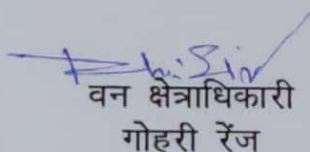 वन क्षेत्राधिकारी
गोहरी रेंज